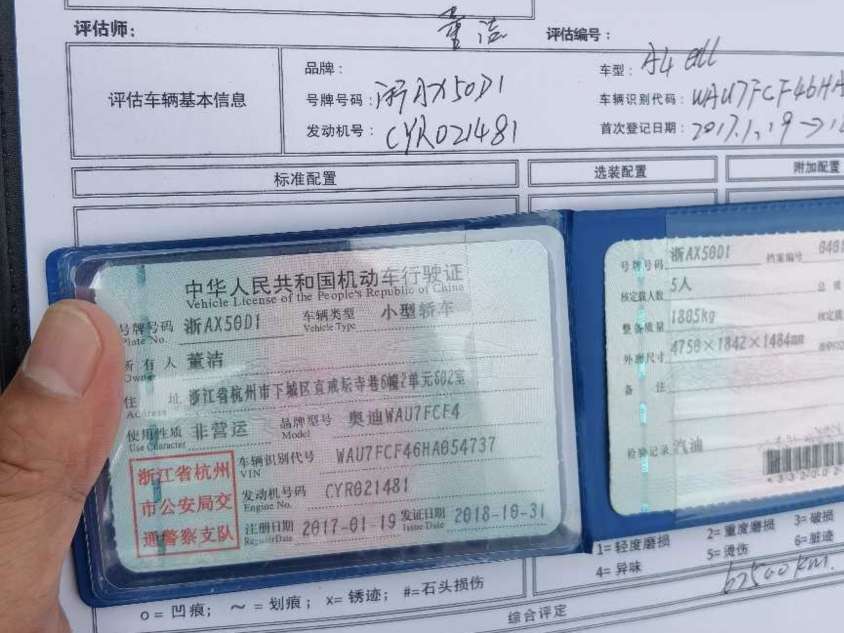 评估师：
评估编号：
评估车辆基本信息
品牌：
车型：A4 all
号牌号码：浙AX50D1
车辆识别代码：WAU7FCF46HA
发动机号：CYR021481
首次登记日期：2017.1.19
标准配置
选装配置
附加配置
中华人民共和国机动车行驶证
Vehicle License of the People's Republic of China
号牌号码 浙AX50D1 车辆类型 小型轿车
Plate No. Vehicle Type
所有人 董洁
Owner
住 址 浙江省杭州市下城区直戒坛寺巷6幢2单元602室
Address
使用性质 非营运 品牌型号 奥迪WAU7FCF4
Use Character Model
浙江省杭州
市公安局交
通警察支队
车辆识别代号 WAU7FCF46HA054737
VIN
发动机号码 CYR021481
Engine No.
注册日期 2017-01-19 发证日期 2018-10-31
Register Date Issue Date
号牌号码 浙AX50D1 档案编号
核定载人数 5人
整备质量 1805kg 核定载
外廓尺寸 4750×1842×1484mm
备 注
检验记录 汽油
1=轻度磨损 2=重度磨损 3=破损
4=异味 5=烫伤 6=脏迹
o=凹痕； ～=划痕； x=锈迹； #=石头损伤
62500km.
综合评定